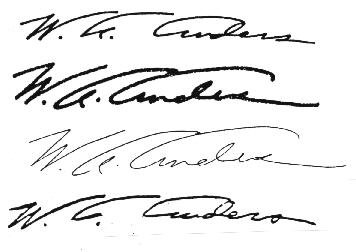 W. A. Anders
W. A. Anders
W. A. Anders
W. A. Anders